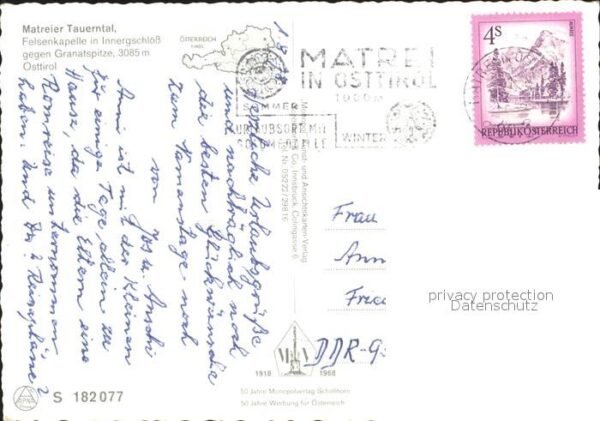 Matreier Tauerntal,
Felsenkapelle in Innergschlöß
gegen Granatspitze, 3085 m
Osttirol
ÖSTERREICH
MATREI
IN OSTTIROL
1000m
SOMMER
URLAUBSORT MIT
WINTER
4s
REPUBLIK ÖSTERREICH
Urlaubsgrüße
und nachträglich noch
die besten Glückwünsche
zum Namenstage noch
von Jos u. Anschi
Anni ist mit der Kleinen
für einige Tage allein zu
Hause, da die Eltern eine
Romreise unternommen
haben. Und Du? Reisepläne?
Frau
Ann
Frie
DDR-9
privacy protection
Datenschutz
M V
1918 1968
50 Jahre Monopolverlag Schöllhorn
50 Jahre Werbung für Österreich
S 182077